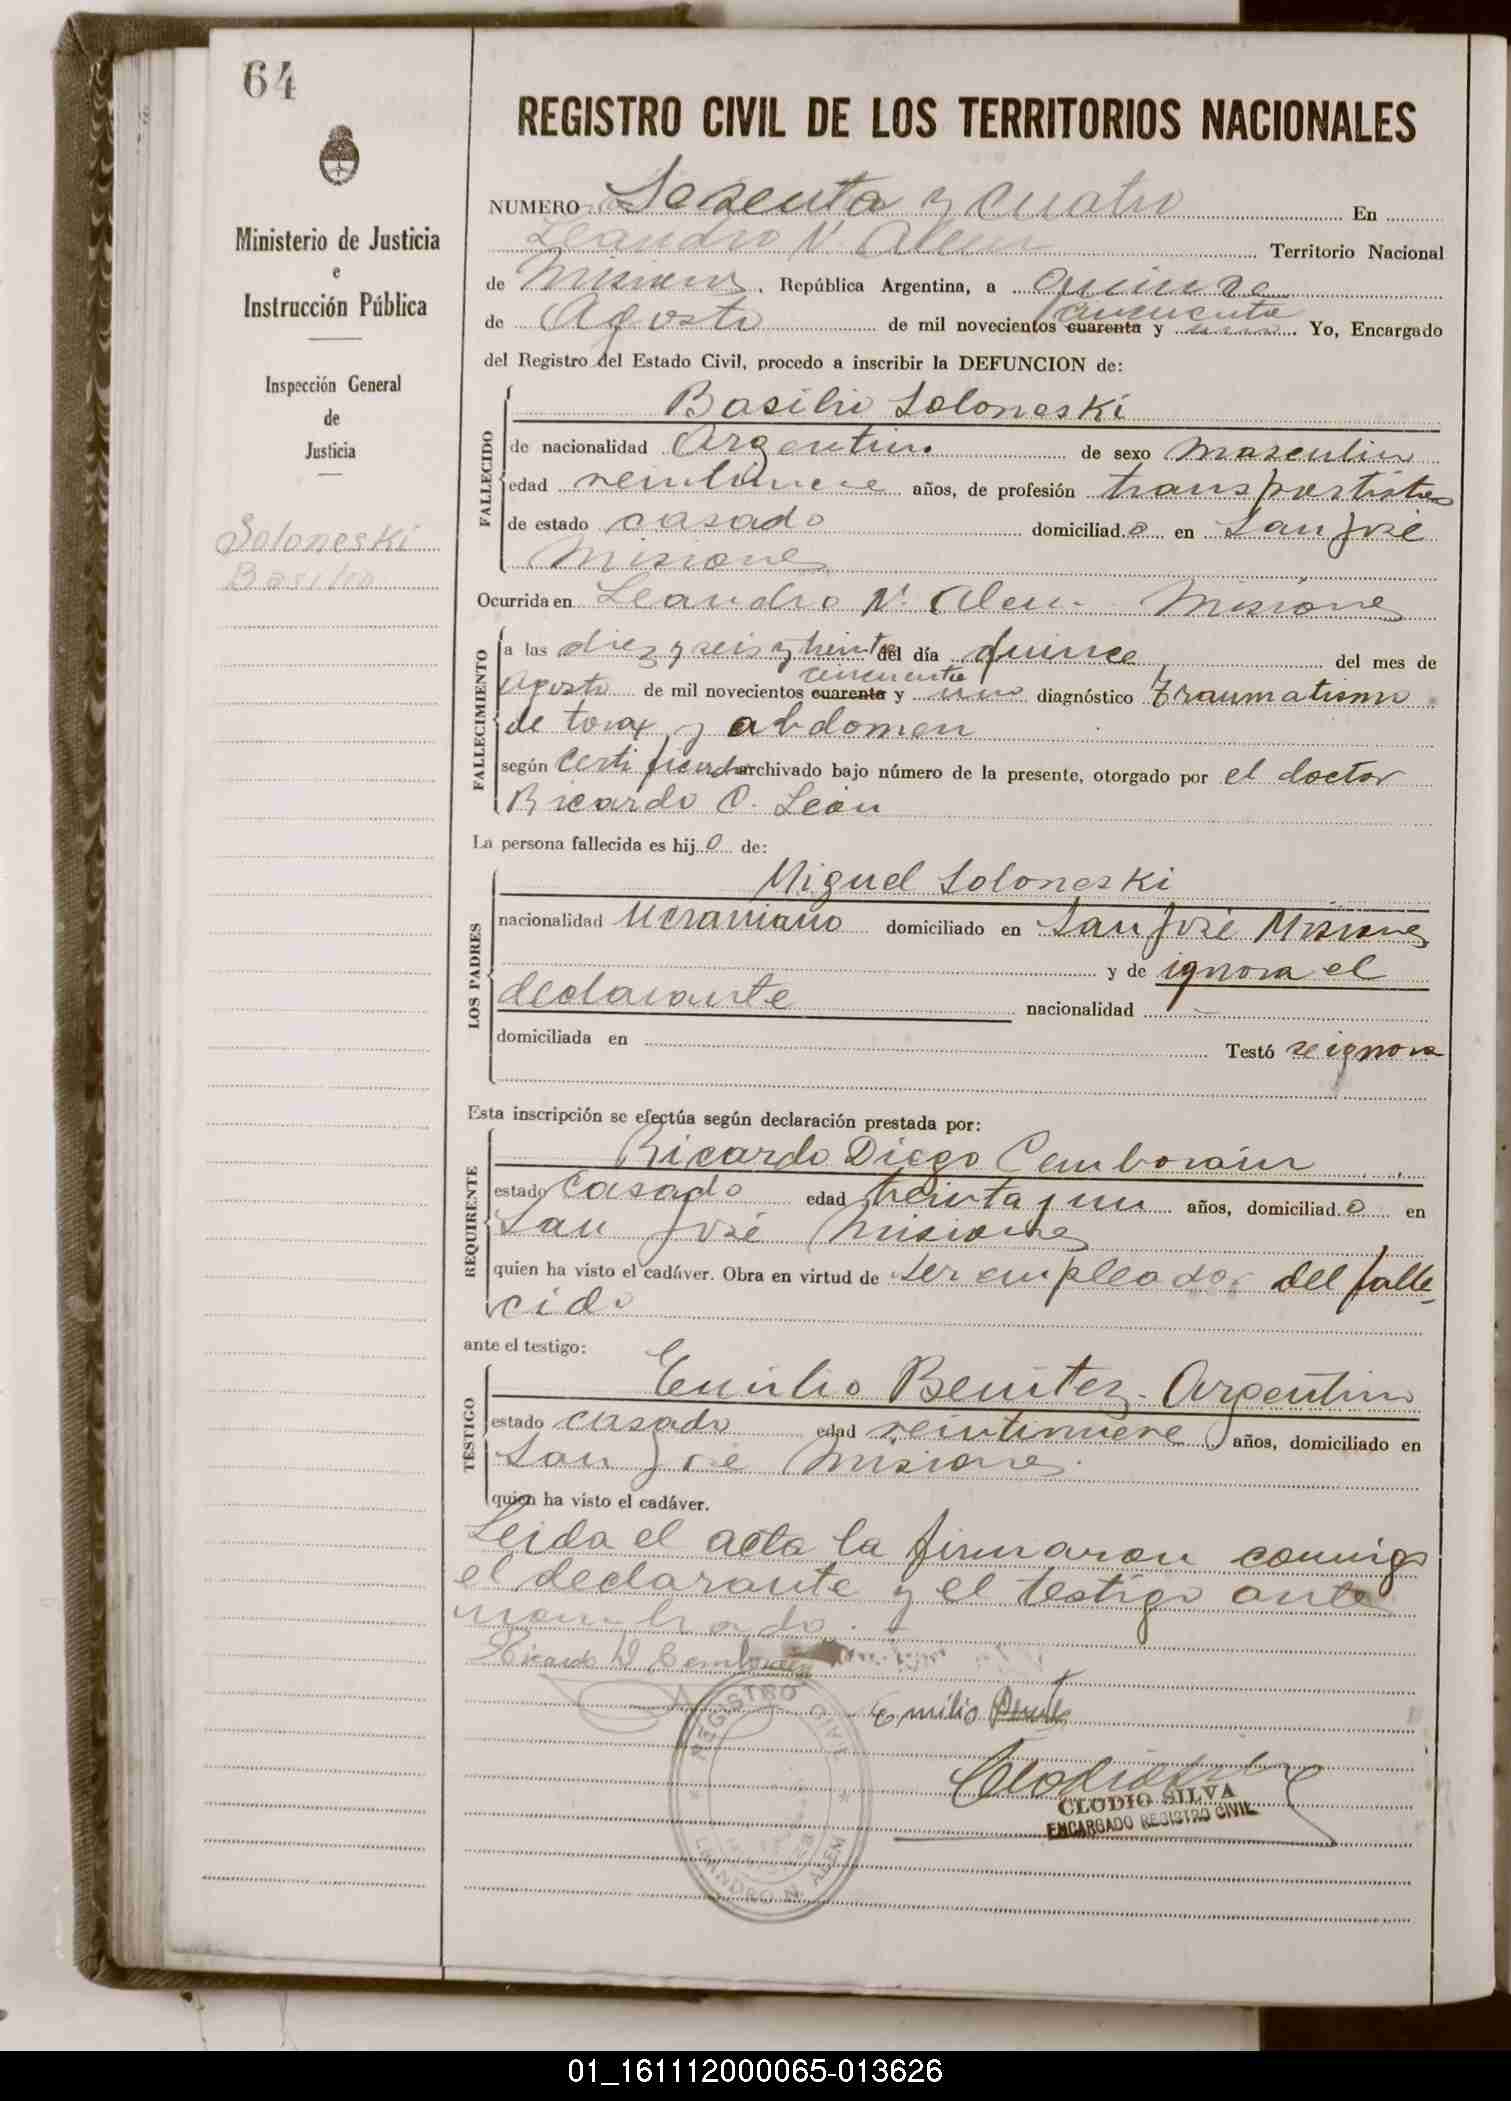 64
REGISTRO CIVIL DE LOS TERRITORIOS NACIONALES
Ministerio de Justicia
e
Instrucción Pública
Inspección General
de
Justicia
Soloneski
Basilio
NUMERO Sesenta y cuatro En
Leandro N. Alem Territorio Nacional
de Misiones, República Argentina, a quince
de Agosto de mil novecientos cuarenta cincuenta y uno Yo, Encargado
del Registro del Estado Civil, procedo a inscribir la DEFUNCION de:
FALLECIDO
Basilio Soloneski
de nacionalidad Argentino de sexo masculino
edad veintinueve años, de profesión transportista
de estado casado domiciliad o en San José
Misiones
Ocurrida en Leandro N. Alem Misiones
FALLECIMIENTO
a las diez y seis y treinta del día quince del mes de
Agosto de mil novecientos cuarenta cincuenta y uno diagnóstico Traumatismo
de torax y abdomen
según certificado archivado bajo número de la presente, otorgado por el doctor
Ricardo O. León
La persona fallecida es hij o de:
LOS PADRES
Miguel Soloneski
nacionalidad Ucraniano domiciliado en San José Misiones
y de ignora el
declarante nacionalidad -
domiciliada en Testó se ignora
Esta inscripción se efectúa según declaración prestada por:
REQUIRENTE
Ricardo Diego Cemborain
estado casado edad treinta y un años, domiciliad o en
San José Misiones
quien ha visto el cadáver. Obra en virtud de ser empleador del falle-
cido
ante el testigo:
TESTIGO
Emilio Benitez - Argentino
estado casado edad veintinueve años, domiciliado en
San José Misiones.
quien ha visto el cadáver.
Leida el acta la firmaron conmigo
el declarante y el testigo ante
nombrado.
Ricardo D Cemborain
Emilio
REGISTRO CIVIL
LEANDRO N. ALEM
CLODIO SILVA
ENCARGADO REGISTRO CIVIL
01_161112000065-013626